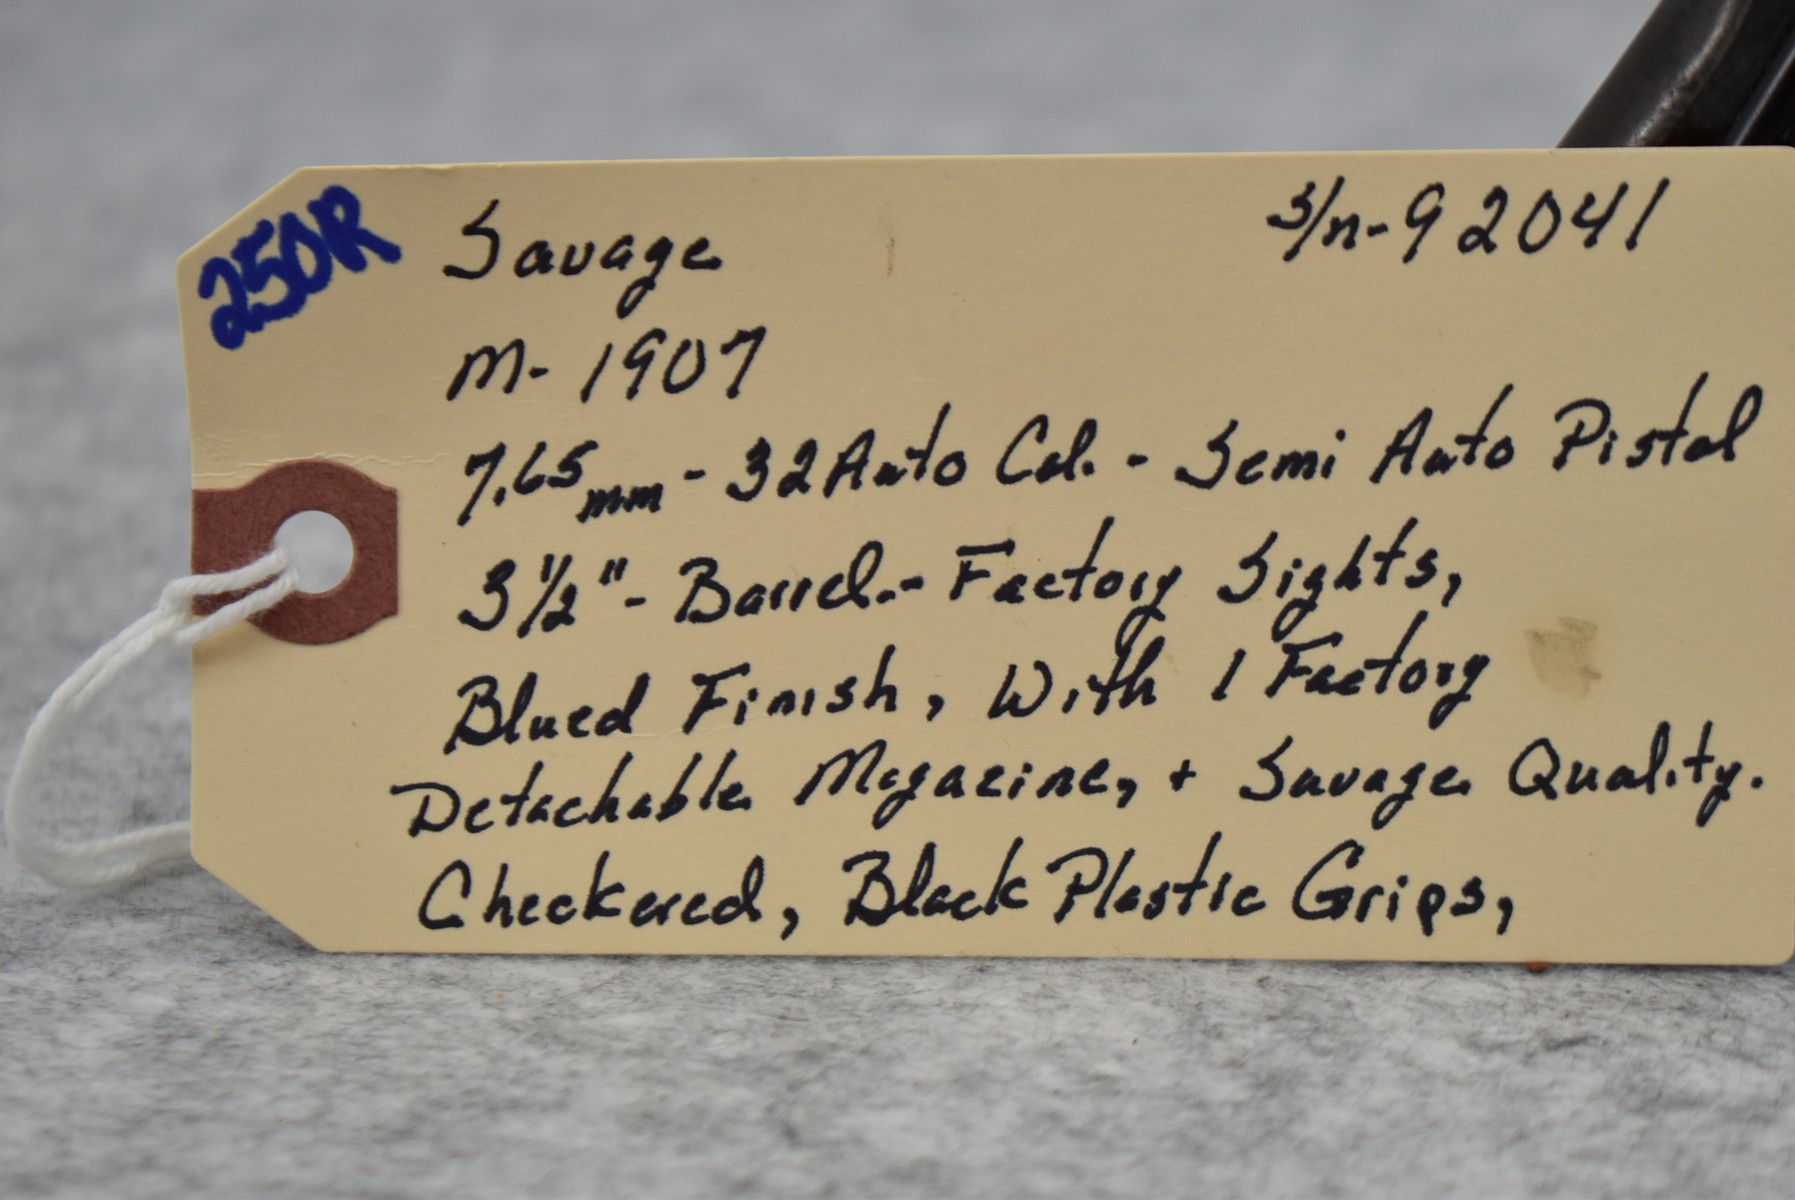 250R
Savage S/n-92041
M-1907
7.65mm - 32 Auto Cal. - Semi Auto Pistol
3 1/2" - Barrel. - Factory Sights,
Blued Finish, With 1 Factory
Detachable Magazine, + Savage Quality.
Checkered, Black Plastic Grips,